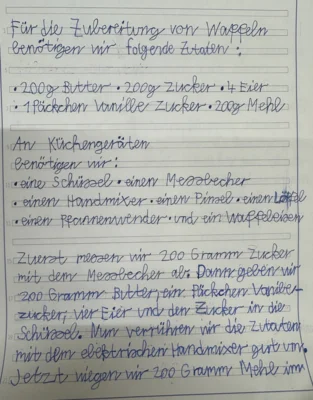 Für die Zubereitung von Waffeln
benötigen wir folgende Zutaten:
• 200g Butter • 200g Zucker • 4 Eier
• 1 Päckchen Vanille Zucker • 200g Mehl
An Küchengeräten
benötigen wir:
• eine Schüssel • einen Messbecher
• einen Handmixer • einen Pinsel • einen Löffel
• einen Pfannenwender • und ein Waffeleisen
Zuerst messen wir 200 Gramm Zucker
mit dem Messbecher ab. Dann geben wir
200 Gramm Butter, ein Päckchen Vanille-
zucker, vier Eier und den Zucker in die
Schüssel. Nun verrühren wir die Zutaten
mit dem elektrischen Handmixer gut um.
Jetzt wiegen wir 200 Gramm Mehl im